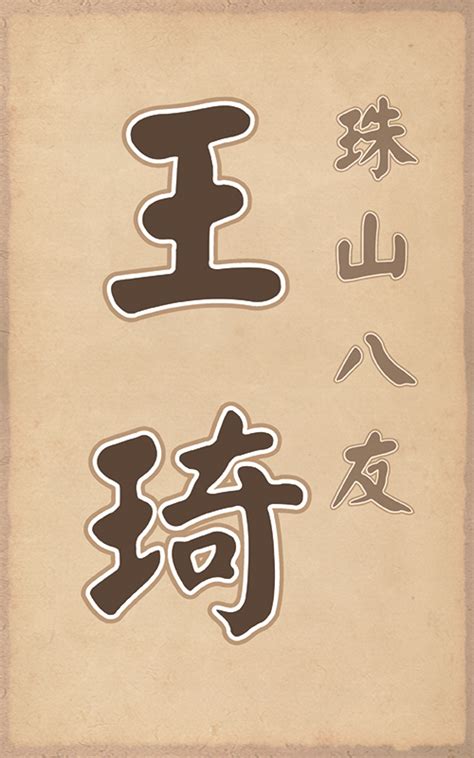 珠山八友
王琦